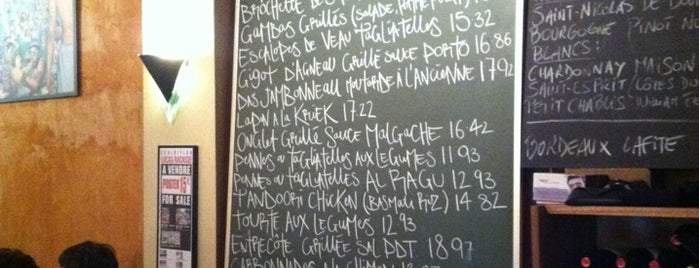 BROCHETTE DE
GAMBAS GRILLÉS (SALADE,
ESCALOPES DE VEAU TAGLIATELLES 15 32
GIGOT D'AGNEAU GRILLÉ SAUCE PORTO 16 86
DAS JAMBONNEAU MOUTARDE À L'ANCIENNE 17 92
LAPIN A LA KRIEK 17.22
ONGLET GRILLÉ SAUCE MALGACHE 16 42
PENNES OU TAGLIATELLES AUX LEGUMES 11 93
PENNES OU TAGLIATELLES AL RAGU 12 93
TANDOORI CHICKEN (BASMATI RIZ) 14 82
TOURTE AUX LEGUMES 12 93
ENTRECÔTE GRILLÉE SAL PDT 18 97
CARBONNADES
SAINT-NICOLAS DE
BOURGOGNE PINOT
BLANCS:
CHARDONNAY MAISON
SAINT-ESPRIT CÔTES DU
PETIT CHABLIS
BORDEAUX LAFITE
EXHIBITION
LUCAS RACASSE
A VENDRE
POSTER 15
FOR SALE